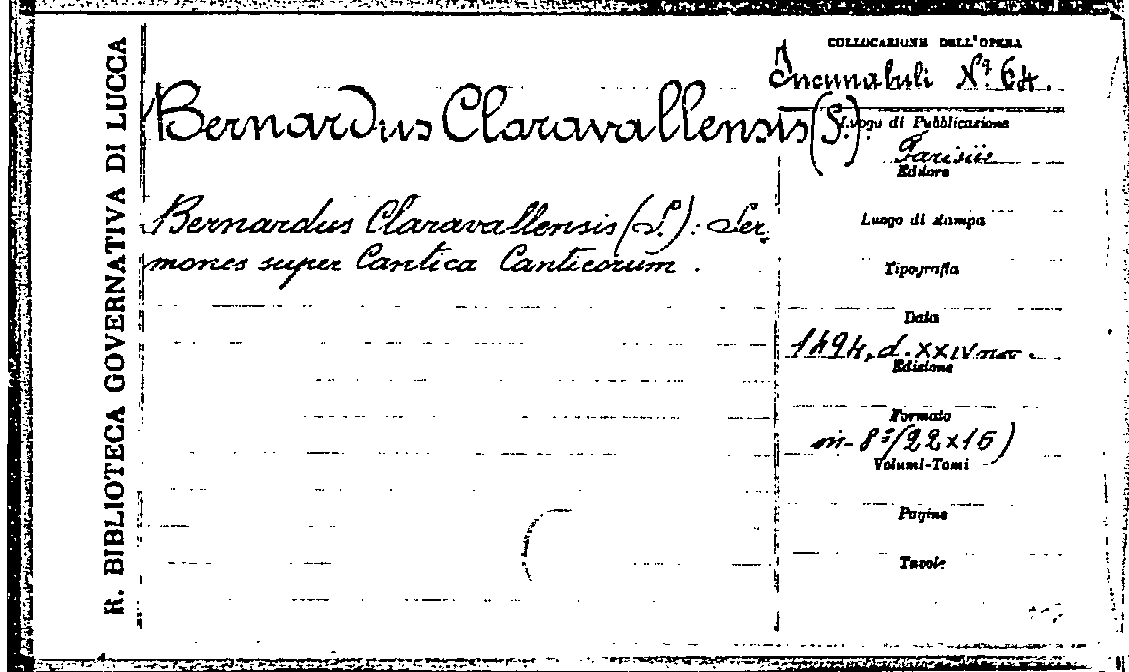 R. BIBLIOTECA GOVERNATIVA DI LUCCA
Bernardus Claravallensis (S.)
Bernardus Claravallensis (S.): Ser-
mones super Cantica Canticorum.
COLLOCAZIONE DELL'OPERA
Incunabuli Nº 64.
Luogo di Pubblicazione
Parisiis
Editore
Luogo di stampa
Tipografia
Data
1494, d. XXIV
Edizione
Formato
in-8º (22x15)
Volumi-Tomi
Pagine
Tavole